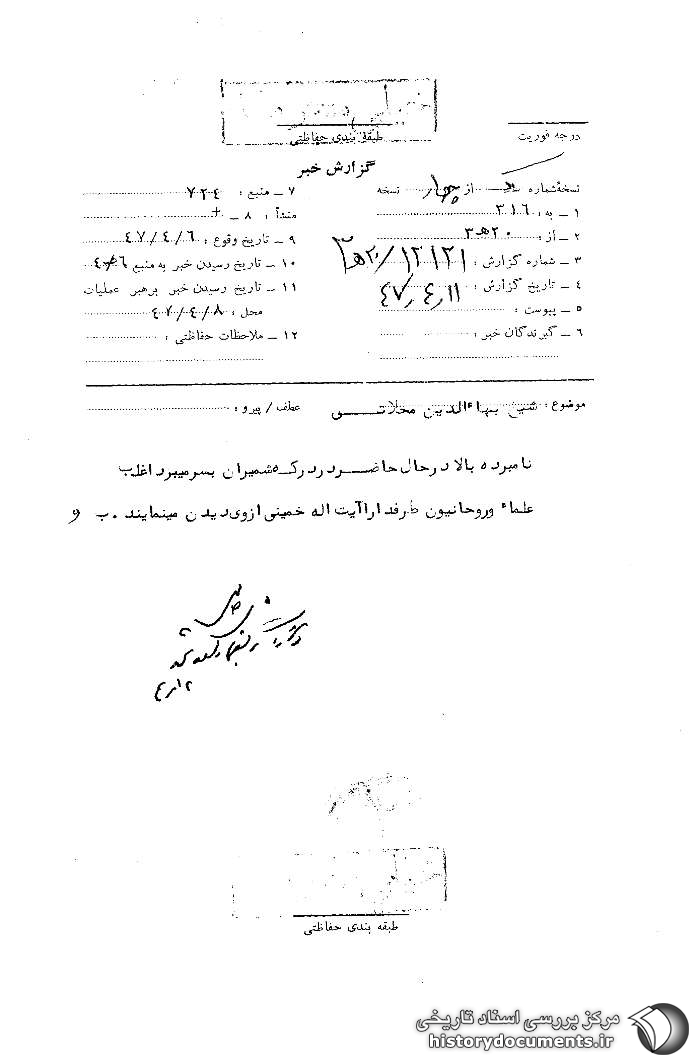 طبقه بندی حفاظتی
درجه فوریت
گزارش خبر
نسخهٔ شماره از چهار نسخه
۱ ـ به: ۳۱۶
۲ ـ از: ۲۰ هـ ۳
۳ ـ شماره گزارش: ۱۲۱۲۱/ ۲۰ هـ ۳
۴ ـ تاریخ گزارش: ۴۷٫۴٫۱۱
۵ ـ پیوست:
۶ ـ گیرندگان خبر:
۷ ـ منبع: ۷۲۴
۸ ـ منشأ: +
۹ ـ تاریخ وقوع: ۴۷/۴/۶
۱۰ ـ تاریخ رسیدن خبر به منبع
۱۱ ـ تاریخ رسیدن خبر برهبر عملیات
محل: ۴۷/۴/۸
۱۲ ـ ملاحظات حفاظتی:
موضوع: شیخ بهاءالدین محلاتی
عطف / پیرو:
نامبرده بالا درحال حاضر در درکه شمیران بسر میبرد اغلب
علماء وروحانیون طرفدار آیت اله خمینی ازوی دیدن مینمایند . ب و
طبقه بندی حفاظتی
مرکز بررسی اسناد تاریخی
historydocuments.ir